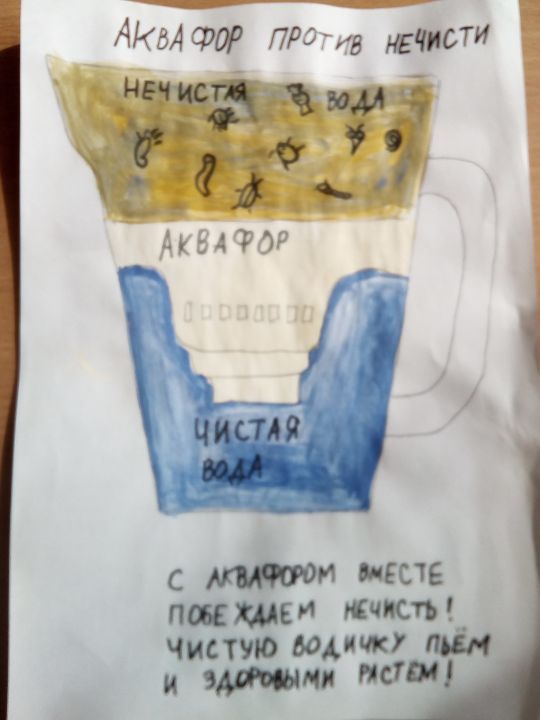 АКВАФОР ПРОТИВ НЕЧИСТИ
НЕЧИСТАЯ ВОДА
АКВАФОР
ЧИСТАЯ
ВОДА
С АКВАФОРОМ ВМЕСТЕ
ПОБЕЖДАЕМ НЕЧИСТЬ!
ЧИСТУЮ ВОДИЧКУ ПЬЁМ
И ЗДОРОВЫМИ РАСТЁМ!